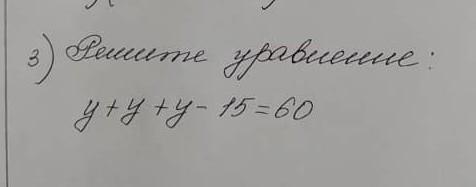 3) Решите уравнение:
у + у + у - 15 = 60